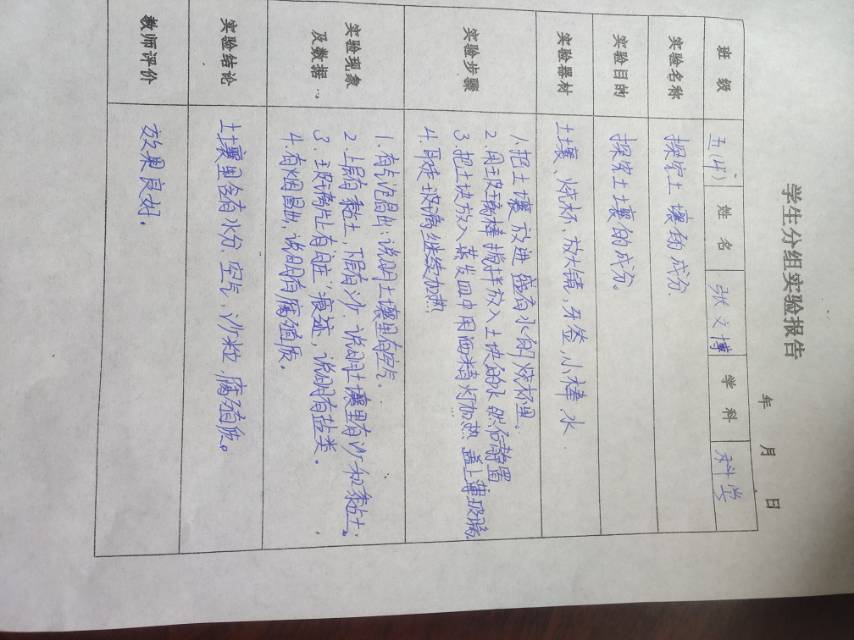 学生分组实验报告
年 月 日
班级 五(4) 姓名 张文博 学科 科学
实验名称 探究土壤的成分
实验目的 探究土壤的成分。
实验器材 土壤、烧杯、放大镜,牙签,小棒,水
实验步骤
1.把土壤放进盛有水的烧杯里。
2.用玻璃棒搅拌放入土块的水然后静置
3.把土块放入蒸发皿中用酒精灯加热盖上薄玻璃
4.取走玻璃继续加热
实验现象及数据
1.有气泡冒出;说明土壤里有空气。
2.上层有黏土,下层有沙.说明土壤里有沙和黏土;
3.玻璃片上有“脏”痕迹,说明有盐类。
4.有烟冒出,说明有腐殖质。
实验结论 土壤里含有水分、空气、沙粒,腐殖质。
教师评价 效果良好。